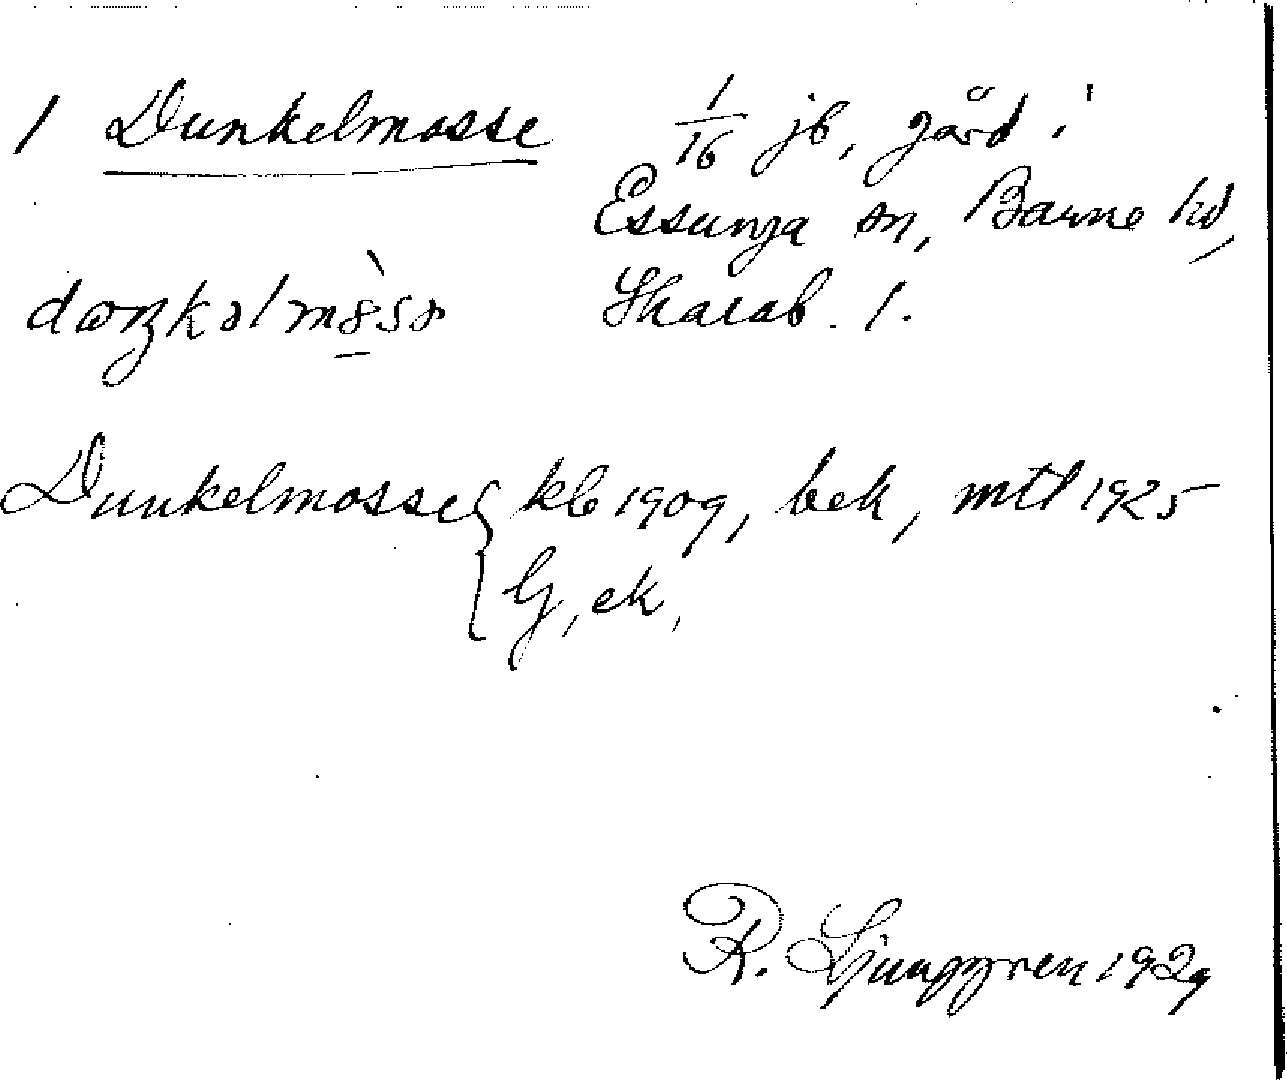 1 Dunkelmosse 1/16 jb, gård i
Essunga sn, Barne hd,
Skarab. l.
Dunkelmosse { kb 1909, bek, mtl 1925
G, ek,
R. Ljunggren 1929